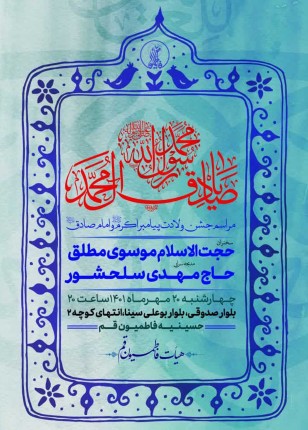 محمد رسول الله
یا صادق آل محمد
مراسم جشن ولادت پیامبر اکرم ﷺ و امام صادق
سخنران
حجت الاسلام موسوی مطلق
حاج مهدی سلحشور
چهارشنبه ۲۰ مهرماه ۱۴۰۱ ساعت ۲۰
بلوار صدوقی، بلوار بوعلی سینا، انتهای کوچه ۲
حسینیه فاطمیون قم
هیات فاطمیون قم